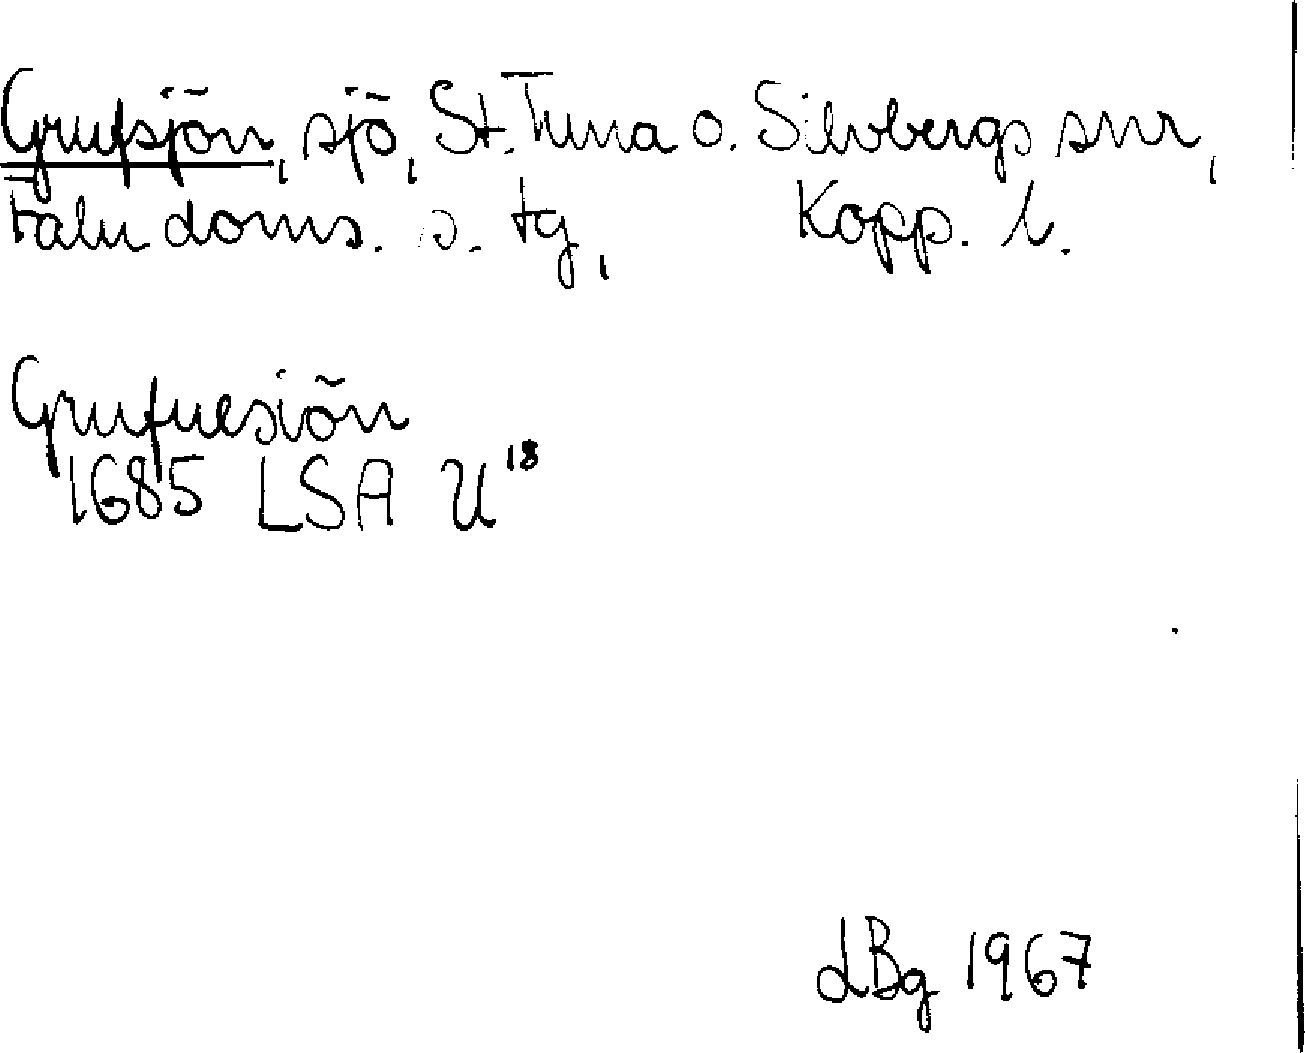 Grufsjön, sjö, St. Tuna o. Silvbergs snr,
Falu doms. o. tg, Kopp. l.
Grufuesiön
1685 LSA U 18
LBg 1967